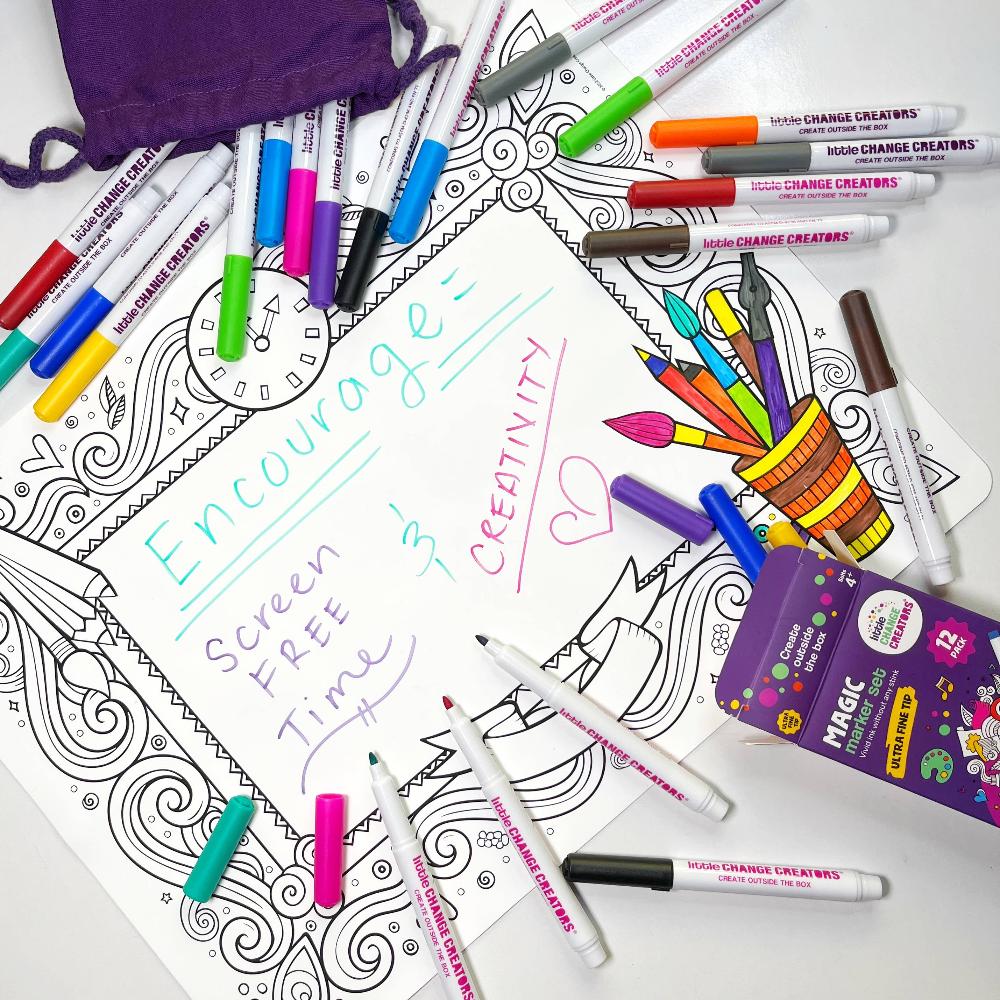 little CHANGE CREATORS
CREATE OUTSIDE THE BOX
little CHANGE CREATORS
CREATE OUTSIDE THE BOX
little CHANGE CREATORS®
CREATE OUTSIDE THE BOX
little CHANGE CREATORS®
CREATE OUTSIDE THE BOX
little CHANGE CREATORS®
CREATE OUTSIDE THE BOX
little CHANGE CREATORS®
little CHANGE CREATORS
CREATE OUTSIDE THE BOX
little CHANGE CREATORS
CREATE OUTSIDE THE BOX
little CHANGE CREATORS®
CREATE OUTSIDE THE BOX
Encourage =
CREATIVITY
&
Screen
FREE
Time
Suits
4+
Create
outside
the box
ULTRA
FINE
TIP
little
CHANGE
CREATORS®
12
PACK
MAGIC
marker set
Vivid ink without any stink
ULTRA FINE TIP
little CHANGE CREATORS®
little CHANGE CREATORS®
CREATE OUTSIDE THE BOX
little CHANGE CREATORS®
CREATE OUTSIDE THE BOX
little CHANGE CREATORS®
CREATE OUTSIDE THE BOX